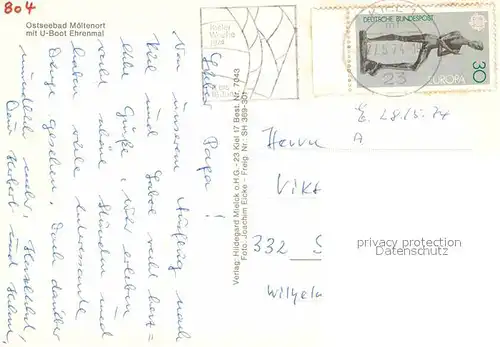 804
Ostseebad Möltenort
mit U-Boot Ehrenmal
Kieler
Woche
1974
23
DEUTSCHE BUNDESPOST
EUROPA
30
E. 28/5. 74
A
Lieber Papa!
Von unserem Ausflug nach
Kiel und Laboe recht herz=
liche Grüße, wir erleben
recht schöne Stunden und
haben viele interessante
Dinge gesehen. Doch darüber
mündlich mehr. Herzlichst,
Dein Hubert und
Verlag: Hildegard Mielck o.H.G. - 23 Kiel 17 Best. Nr. 7043
Foto: Joachim Eicke - Freig. Nr.: SH 369-301
Herrn
Vikt
332 S
Wilhelm
privacy protection
Datenschutz